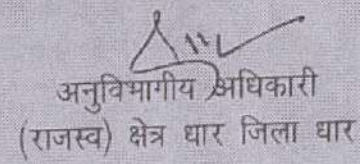 अनुविभागीय अधिकारी
(राजस्व) क्षेत्र धार जिला धार